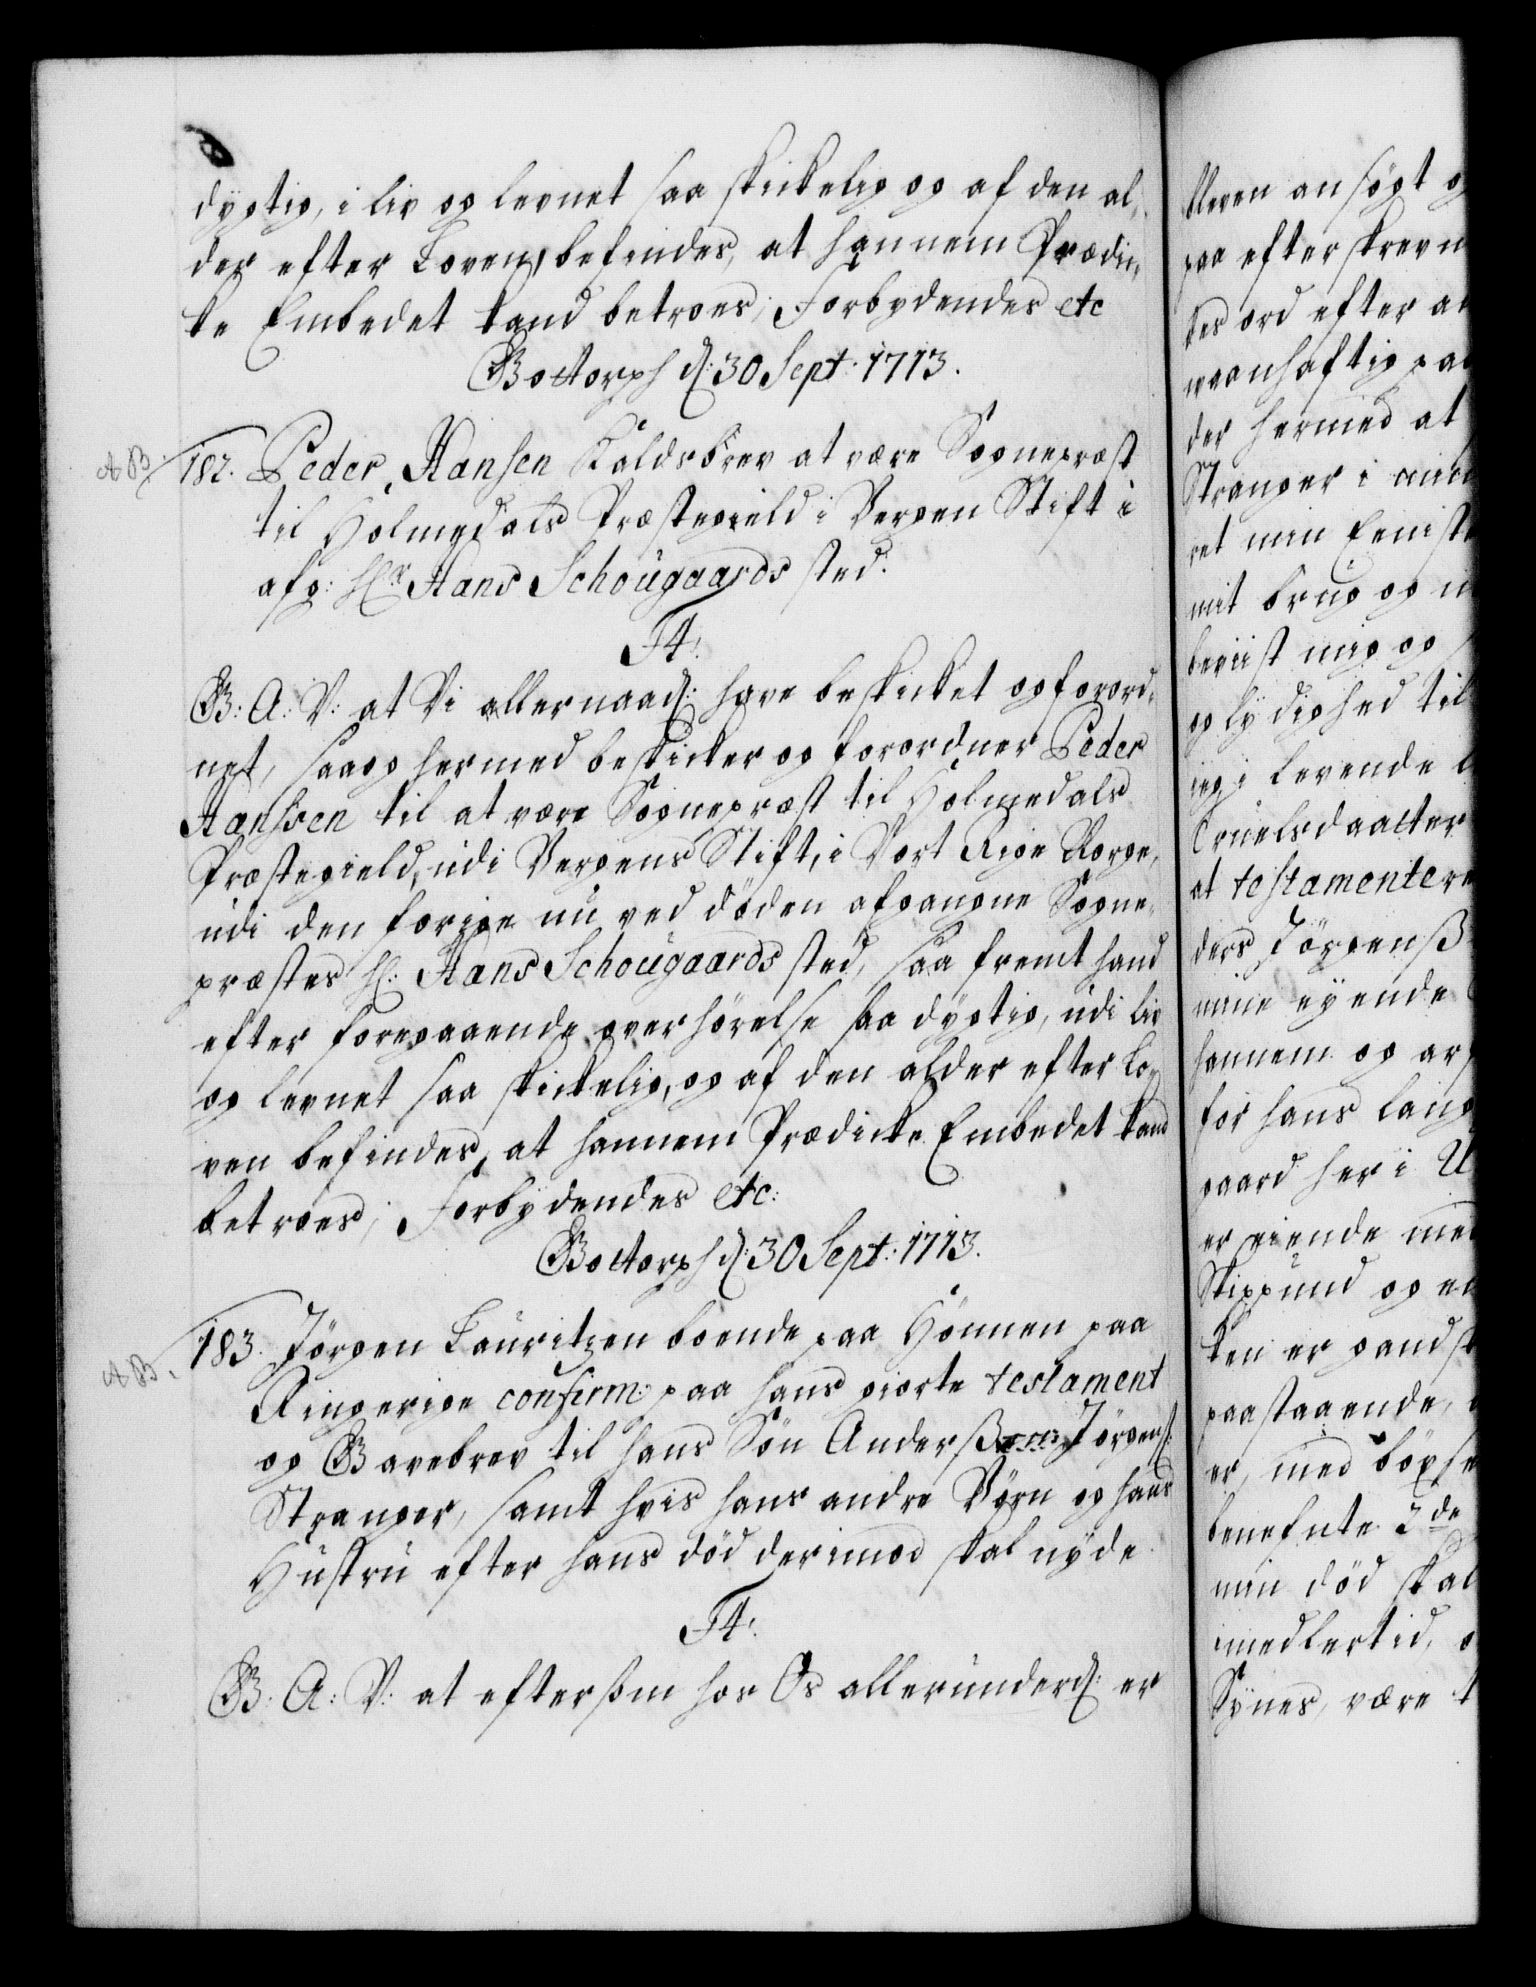 dygtig, i liv og levnet saa skickelig og af den al„
der efter Loven, befindes, at hannem Prædi„
ke Embedet kand betroes, Forbydendes etc
Gottorph d: 30 Sept: 1713.
AB.
182. Peder Hansen Kaldsbrev at være Sognepræst
til Holmedals Præstegield i Bergen Stift i
afg: Hr Hans Schougaards sted.
F4.
G: A: V: at Vi allernaad: have beskicket og forord„
net, saa og hermed beskicker og forordner Peder
Hanssen til at være Sognepræst til Holmedals
Præstegield, udi Bergens Stift, i Vort Rige Norge,
udi den forrige nu ved döden afgangne Sogne„
præstes H: Hans Schougaards sted, saa fremt hand
efter foregaaende overhörelse saa dygtig, udi liv
og levnet saa skickelig, og af den alder efter Lo„
ven befindes, at hannem Prædicke Embedet kand
betroes; Forbydendes etc:
Gottorph d: 30 Sept: 1713.
AB.
183. Jörgen Lauritzen boende paa Hönnen paa
Ringerige confirm: paa hans giorte testament
og Gavebrev til hans Sön Anderß Jörgens:
Stranger, samt hvis hans andre Börn og hans
Hustru efter hans död derimod skal nyde
F4.
G: A: V: at eftersom hos Os allerunderd: er
tleven ansögt og
paa efterskrevn
tes ord efter an
vaanhaftig paa
der hermed at
Stranger i
ret min Eeniste
mit brug og
beviist mig og
og lydighed til
jeg i levende l
Truelsdaatter
at testamentere
ders Jörgenß
mine eyende
hannem og arf
for hans lang
gaard her i
er eiende med
Skippund og en
ken er pandst
paastaaende,
er, med böxse
benefnte 2de
min död skal
imedlertid, o
Synes, være t